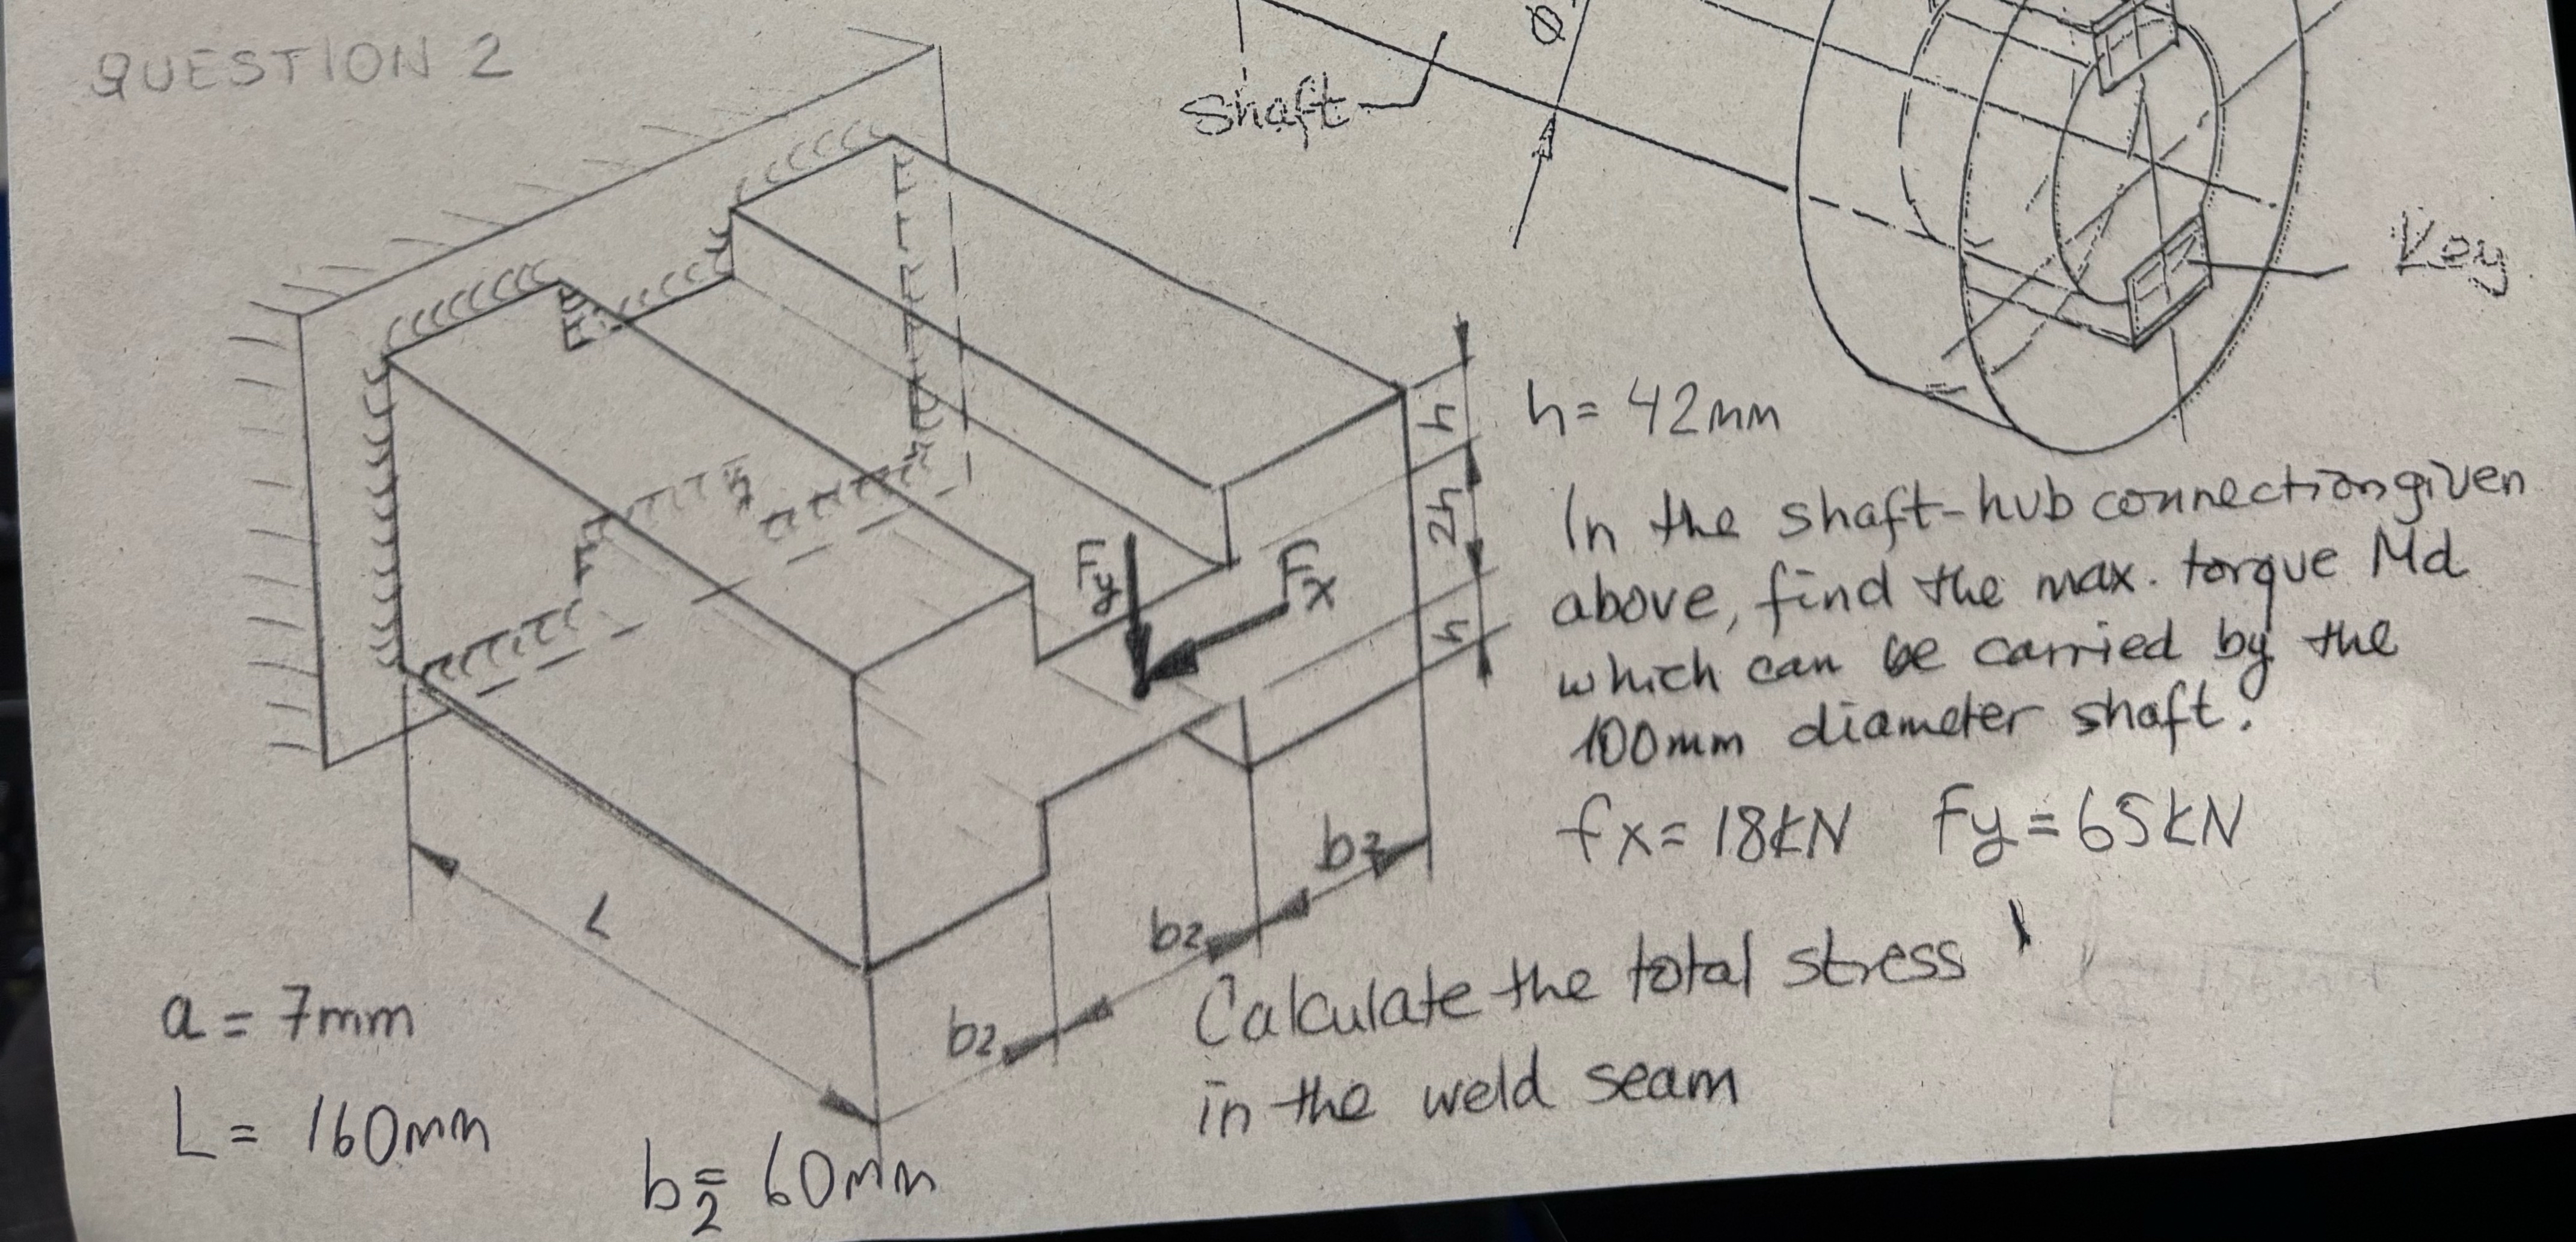 QUESTION 2
Shaft
Ø
Key
h
2h
h
h= 42mm
In the shaft-hub connection given
above, find the max. torque Md
which can be carried by the
100mm diameter shaft.
Fy
Fx
fx= 18kN Fy=65kN
L
b2
b2
b2
a = 7mm
L= 160mm
b2= 60mm
Calculate the total stress
in the weld seam